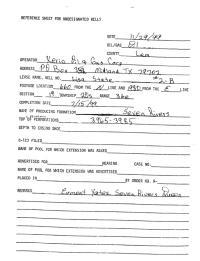 REFERENCE SHEET FOR UNDESIGNATED WELLS
DATE 11/29/99
OIL/GAS Oil
COUNTY Lea
OPERATOR Xeric Oil & Gas Corp
ADDRESS PO Box Midland TX 79702
LEASE NAME, WELL NO. State # 2-B
FOOTAGE LOCATION 660 FROM THE N LINE AND 1980 FROM THE E LINE
SECTION 19 TOWNSHIP 25S RANGE 36E
COMPLETION DATE 2/15/99
NAME OF PRODUCING FORMATION Seven Rivers
TOP OF PERFORATIONS 3965-3985
DEPTH TO CASING SHOE
C-123 FILED
NAME OF POOL FOR WHICH EXTENSION WAS ASKED
ADVERTISED FOR HEARING CASE NO.
NAME OF POOL FOR WHICH EXTENSION WAS ADVERTISED
PLACED IN BY ORDER NO. R-
REMARKS Yates Seven Rivers